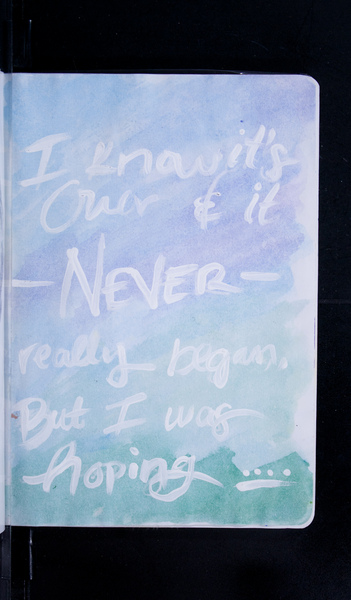 I know it's
Over & it
- NEVER -
really began.
But I was
hoping ....